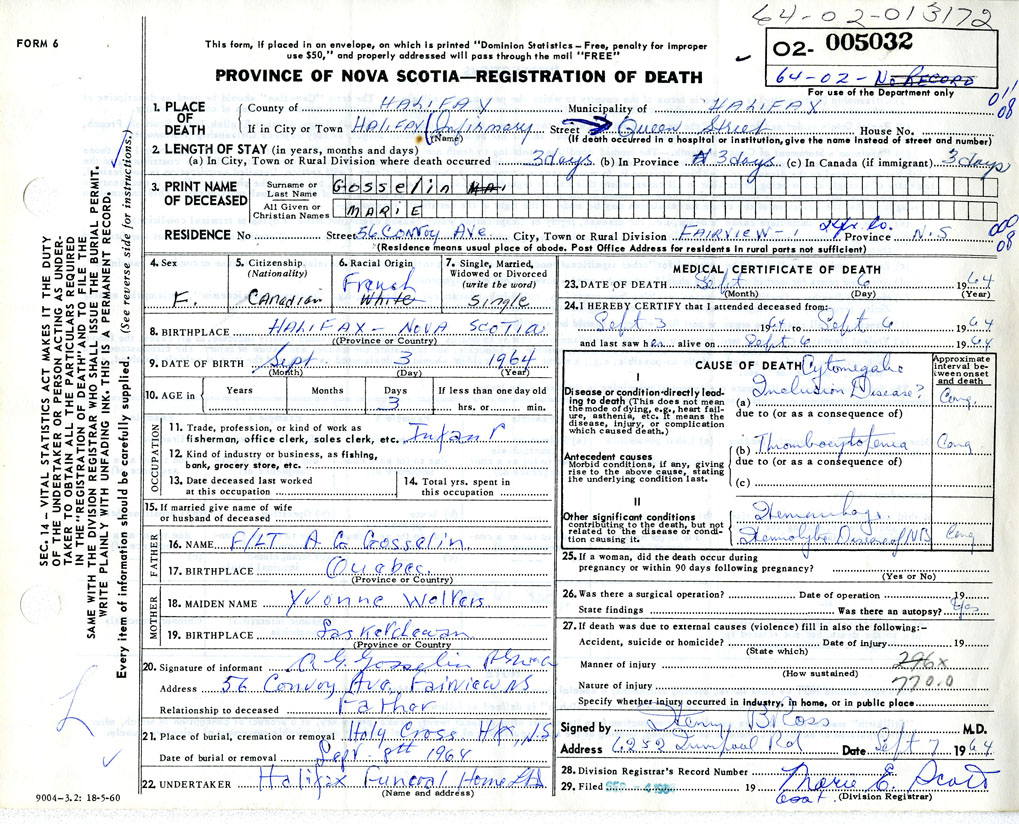 64-02-013172
FORM 6
This form, if placed in an envelope, on which is printed "Dominion Statistics – Free, penalty for improper
use $50," and properly addressed will pass through the mail "FREE"
02- 005032
64-02- No RECORD
For use of the Department only
011
08
PROVINCE OF NOVA SCOTIA—REGISTRATION OF DEATH
1. PLACE OF DEATH
County of HALIFAX Municipality of HALIFAX
If in City or Town HALIFAX (Infirmary Street Queen Street House No.
(Name) (If death occurred in a hospital or institution, give the name instead of street and number)
2. LENGTH OF STAY (in years, months and days)
(a) In City, Town or Rural Division where death occurred 3 days (b) In Province 3 days (c) In Canada (if immigrant) 3 days
3. PRINT NAME OF DECEASED
Surname or Last Name Gosselin
All Given or Christian Names MARIE
RESIDENCE No Street 56 CONVOY Ave. City, Town or Rural Division FAIRVIEW-1 Hfx. Co. Province N.S
000
08
(Residence means usual place of abode. Post Office Address for residents in rural parts not sufficient)
4. Sex
F.
5. Citizenship
(Nationality)
CANADIAN
6. Racial Origin
French
White
7. Single, Married, Widowed or Divorced
(write the word)
Single
8. BIRTHPLACE HALIFAX - NOVA SCOTIA
(Province or Country)
9. DATE OF BIRTH Sept. 3 1964
(Month) (Day) (Year)
10. AGE in Years Months Days If less than one day old
3 hrs. or min.
OCCUPATION
11. Trade, profession, or kind of work as
fisherman, office clerk, sales clerk, etc. Infant
12. Kind of industry or business, as fishing,
bank, grocery store, etc.
13. Date deceased last worked
at this occupation
14. Total yrs. spent in
this occupation
15. If married give name of wife
or husband of deceased
FATHER
16. NAME F/LT A G Gosselin
17. BIRTHPLACE Quebec
(Province or Country)
MOTHER
18. MAIDEN NAME Yvonne
19. BIRTHPLACE Saskatchewan
(Province or Country)
20. Signature of informant A. G. Gosselin
Address 56 Convoy Ave, Fairview NS
Relationship to deceased Father
21. Place of burial, cremation or removal Holy Cross Hfx, N.S
Date of burial or removal Sept. 8th 1964
22. UNDERTAKER Halifax Funeral Home Ltd
(Name and address)
9004-3.2: 18-5-60
MEDICAL CERTIFICATE OF DEATH
23. DATE OF DEATH Sept 6 1964
(Month) (Day) (Year)
24. I HEREBY CERTIFY that I attended deceased from:
Sept 3 1964 to Sept 6 1964
and last saw her alive on Sept 6 1964
CAUSE OF DEATH
Approximate interval between onset and death
I
Disease or condition directly leading to death (This does not mean the mode of dying, e.g., heart failure, asthenia, etc. It means the disease, injury, or complication which caused death.)
Cytomegalic
(a) Inclusion Disease? Cong.
due to (or as a consequence of)
Antecedent causes
Morbid conditions, if any, giving rise to the above cause, stating the underlying condition last.
(b) Thrombocytopenia Cong
due to (or as a consequence of)
(c)
II
Other significant conditions
contributing to the death, but not related to the disease or condition causing it.
Hemorrhage.
Hemolytic Disease of NB Cong
25. If a woman, did the death occur during
pregnancy or within 90 days following pregnancy?
(Yes or No)
26. Was there a surgical operation? Date of operation 19
State findings Was there an autopsy? Yes
27. If death was due to external causes (violence) fill in also the following:–
Accident, suicide or homicide? Date of injury 19
(State which)
Manner of injury 296x
(How sustained)
Nature of injury 770.0
Specify whether injury occurred in Industry, in home, or in public place
Signed by Henry B Ross M.D.
Address Rd Date Sept 7 1964
28. Division Registrar's Record Number
29. Filed SEP 19 Marie E. Scott
(Division Registrar)
SEC. 14 – VITAL STATISTICS ACT MAKES IT THE DUTY
OF THE UNDERTAKER OR PERSON ACTING AS UNDER-
TAKER TO OBTAIN ALL THE PARTICULARS REQUIRED
IN THE "REGISTRATION OF DEATH" AND TO FILE THE
SAME WITH THE DIVISION REGISTRAR WHO SHALL ISSUE THE BURIAL PERMIT.
WRITE PLAINLY WITH UNFADING INK. THIS IS A PERMANENT RECORD.
Every item of information should be carefully supplied. (See reverse side for instructions.)